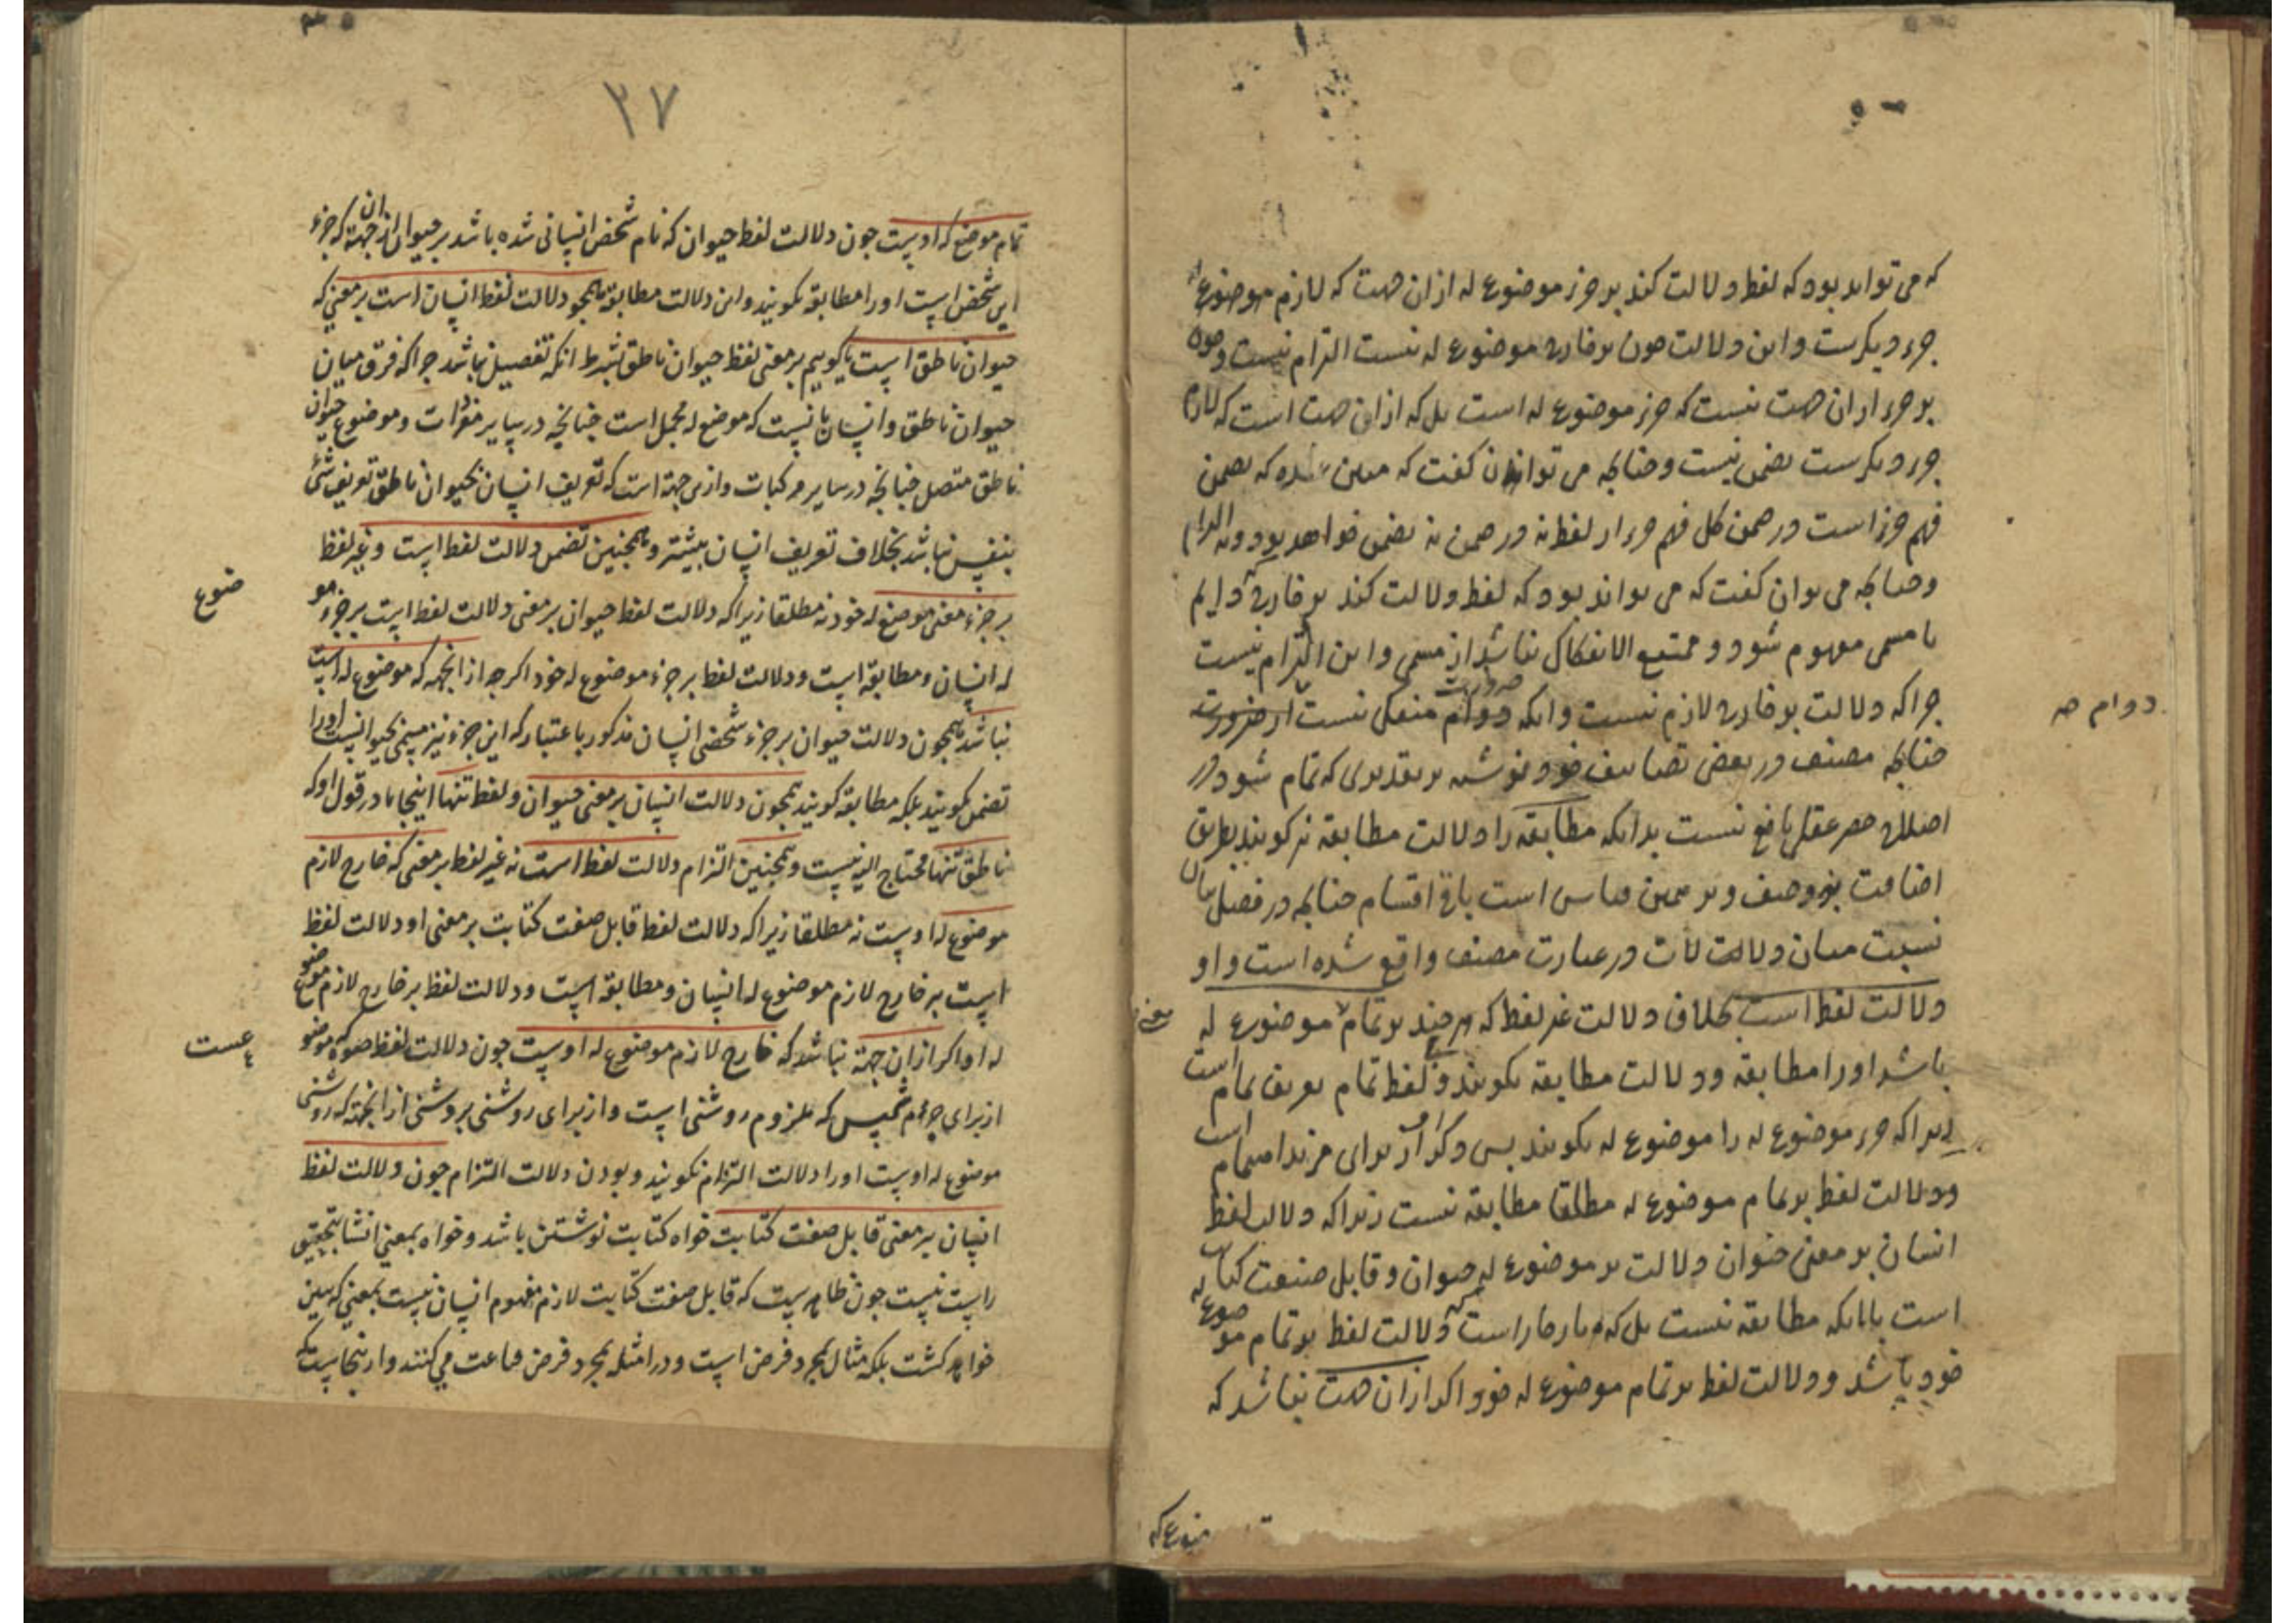 که می تواند بود که لفظ دلالت کند بر جزء موضوع له از ان جهت که لازم موضوع له
جزء دیگرست و این دلالت چون بر خارج موضوع له نیست التزام نیست و چون
بر جزء از ان جهت نیست که جزء موضوع له است بل که از این جهت است که لازم
جزء دیگرست تضمن نیست و چنانچه می توان گفت که مبین شده که تضمن
فهم جزء است در ضمن کل فهم جزء از لفظ نه در ضمن نه تضمن خواهد بود و نه التزام
و چنانچه می توان گفت که می تواند بود که لفظ دلالت کند بر خارجی که دایم
با مسمی مفهوم شود و ممتنع الانفکاک نباشد از مسمی و این التزام نیست
چرا که دلالت بر خارج لازم نیست و انکه دوام منفک نیست از ضرورت
دوام صه
چنانچه مصنف در بعض تصانیف خود نوشته بر تقدیری که تمام شود در
حصر عقلی نافع نیست بدانکه مطابقه را دلالت مطابقه نیز گویند بطریق
اضافت و وصف و بر همین قیاس است باقی اقسام چنانچه در فصل بیان
نسبت میان دلالات در عبارت مصنف واقع شده است و او
دلالت لفظ است بخلاف دلالت غیر لفظ که هر چند بر تمام موضوع له
معنی
باشد او را مطابقه و دلالت مطابقه نگویند و لفظ تمام تعریف تمام است
زیرا که جزء موضوع له را موضوع له نگویند پس ذکر او از برای مزید اهتمام است
و دلالت لفظ بر تمام موضوع له مطلقا مطابقه نیست زیرا که دلالت لفظ
انسان بر معنی حیوان دلالت بر موضوع له حیوان و قابل صنعت کتابت
است با انکه مطابقه نیست بل که ناچار است که دلالت لفظ بر تمام موضوع له
خود باشد و دلالت لفظ بر تمام موضوع له خود اگر از ان جهت نباشد که
موضوع که
۲۷
تمام موضع له اوست چون دلالت لفظ حیوان که نام شخص انسانی شده باشد بر حیوان از ان جهته که جزء
این شخص است او را مطابقه نکویند و این دلالت مطابقه همچو دلالت لفظ انسان است بر معنی که
حیوان ناطق است یا کوییم بر معنی لفظ حیوان ناطق بشرط انکه تفصیل نباشد چرا که فرق میان
حیوان ناطق و انسان بانست که موضع له مجمل است چنانچه در سایر مفردات و موضوع حیوان
ناطق متصل چنانچه در سایر مرکبات و ازین جهة است که تعریف انسان بحیوان ناطق تعریف شئ
بنفس نباشد بخلاف تعریف انسان ببشر و همچنین تضمن دلالت لفظ است و غیر لفظ
بر جزء معنی موضع له خود نه مطلقا زیرا که دلالت لفظ حیوان بر معنی دلالت لفظ است بر جزء مو
ضوع
له انسان و مطابقه است و دلالت لفظ بر جزء موضوع له خود اکر چه از انجهه که موضوع له است
نباشد همچون دلالت حیوان بر جزء شخص انسان مذکور باعتبار که این جزء نیز مسمی بحیوانست او را
تضمن نکویند بلکه مطابقه کویند همچون دلالت انسان بر معنی حیوان و لفظ تنها اینجا با در قول او که
ناطق تنها محتاج الیه نیست و همچنین التزام دلالت لفظ است نه غیر لفظ بر معنی که خارج لازم
موضوع له اوست نه مطلقا زیرا که دلالت لفظ قابل صفت کتابت بر معنی او دلالت لفظ
است بر خارج لازم موضوع له انسان و مطابقه است و دلالت لفظ بر خارج لازم موضوع
له او اکر از ان جهة نباشد که خارج لازم موضوع له اوست چون دلالت لفظ ضوء که موضو
عست
از برای جرم شمس که ملزوم روشنی است و از برای روشنی بر روشنی از انجهة که روشنی
موضوع له اوست او را دلالت التزام نکویند و بودن دلالت التزام چون دلالت لفظ
انسان بر معنی قابل صفت کتابت خواه کتابت نوشتن باشد و خواه بمعنی انشا بتحقیق
راست نیست چون ظاهرست که قابل صفت کتابت لازم مفهوم انسان نیست بمعنی که مبین
خواهد کشت بلکه مثال بمجرد فرض است و در امثله بمجرد فرض قناعت می کنند و ازینجاست که